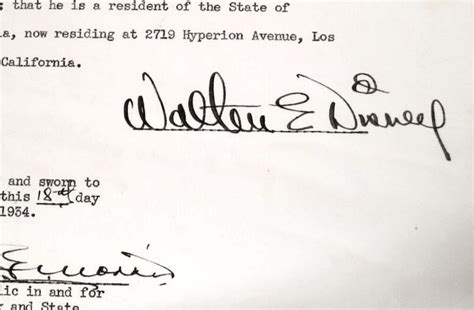 ; that he is a resident of the State of
a, now residing at 2719 Hyperion Avenue, Los
California.
Walter E Disney
and sworn to
this 18th day
1934.
lic in and for
and State